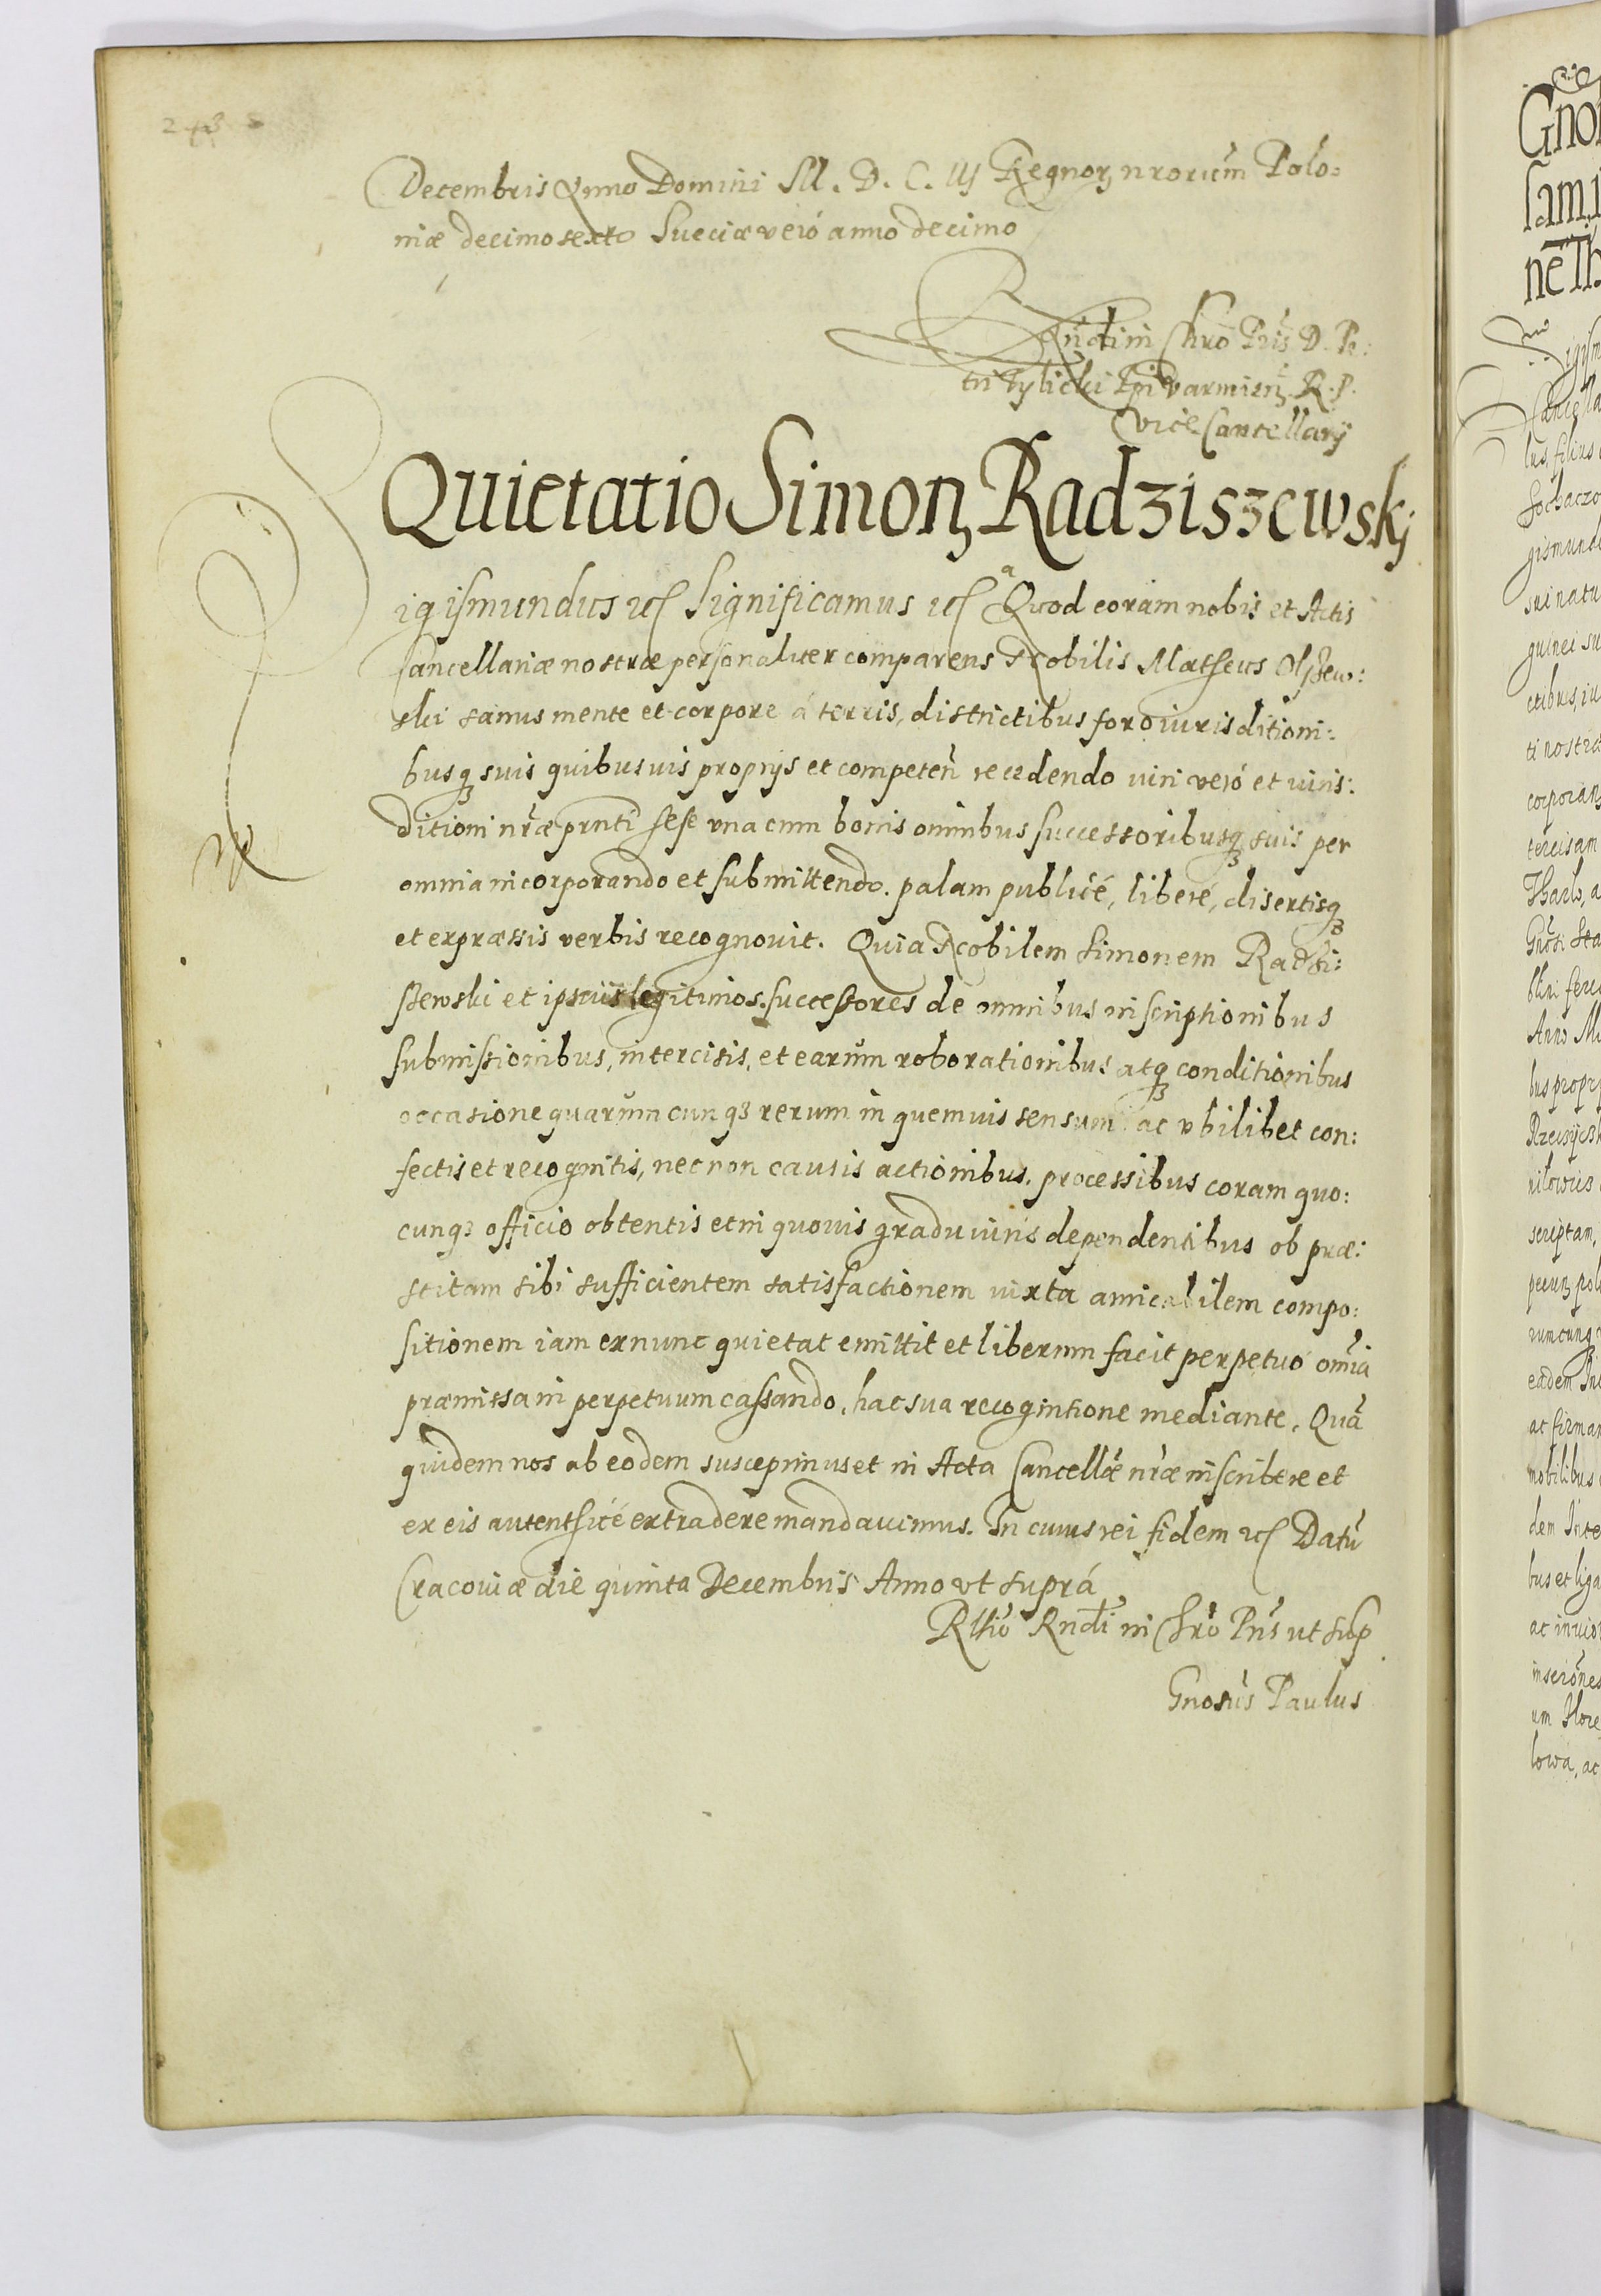 Decembris Anno Domini M. D. C. IIJ Regnorꝫ nrorum Polo:
niæ decimo sexto Sueciæ veró anno decimo
Rndi in Chro Pris D. Pe:
tri Tylicki Epi Varmien R. P.
Vice Cancellarÿ
Quietatio Simonꝫ Radziszewskj
Sigismundus etc Significamus etc Quod coram nobis et Actis
Cancellariæ nostræ personaliter comparens Nobilis Mathæus Olszew:
ski sanus mente et corpore á terris, districtibus foro iurisditioni:
busqꝫ suis quibusuis proprijs et competen recedendo iuri veró et iuris:
ditioni nræ prnti sese vna cum bonis omnibus successoribusqꝫ suis per
omnia incorporando et submittendo. palam publicé, liberé, disertisqꝫ
et expræssis verbis recognouit. Quia Nobilem Simonem Radzi:
szewski et ipsius legitimos successores de omnibus inscriptionibus
submissionibus, intercisis, et earum roborationibus atqꝫ conditionibus
occasione quarumcunqꝫ rerum in quemuis sensum ac vbilibet con:
fectis et recognitis, nec non causis actionibus, processibus coram quo:
cunqꝫ officio obtentis et in quouis gradu iuris dependentibus ob præ:
stitam sibi sufficientem satisfactionem iuxta amicabilem compo:
sitionem iam ex nunc quietat emittit et liberum facit perpetuó omia
præmissa in perpetuum cassando, hac sua recognitione mediante. Qua
quidem nos ab eodem suscepimus et in Acta Cancellæ nræ inscribere et
ex eis autenthicé extradere mandauimus. In cuius rei fidem etc Datu
Cracouiæ die quinta Decembris Anno vt suprá
Rltio Rndi in Chro Pris ut sup
Gnosus Paulus